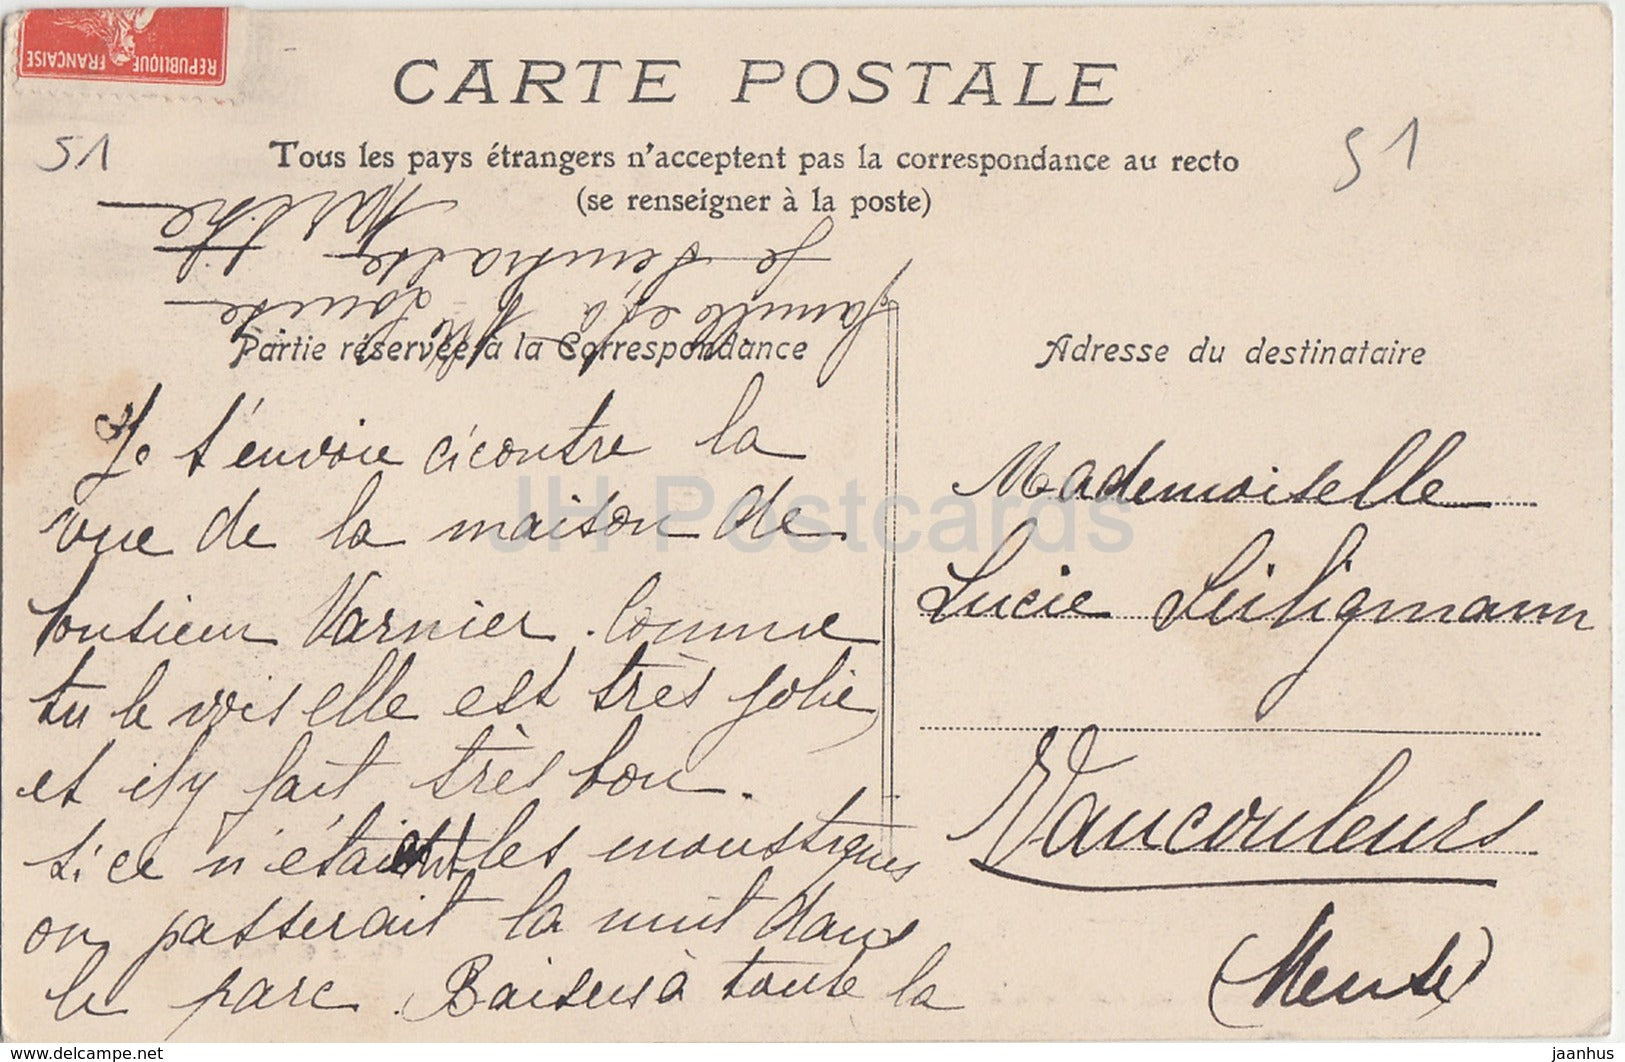 REPUBLIQUE FRANÇAISE
CARTE POSTALE
51
51
Tous les pays étrangers n'acceptent pas la correspondance au recto
(se renseigner à la poste)
Partie réservée à la Correspondance
Adresse du destinataire
Je t'envoie cicontre la
vue de la maison de
Monsieur Varnier. Comme
tu le vois elle est très jolie,
et il y fait très bon.
Si ce n'étaient les moustiques
on passerait la nuit dans
le parc. Baisers à toute la
famille et à Mlle Louise
Je t'embrasse
Marthe
Mademoiselle
Lucie
Vaucouleurs
(Meuse)
JH Postcards
www.delcampe.net
jaanhus